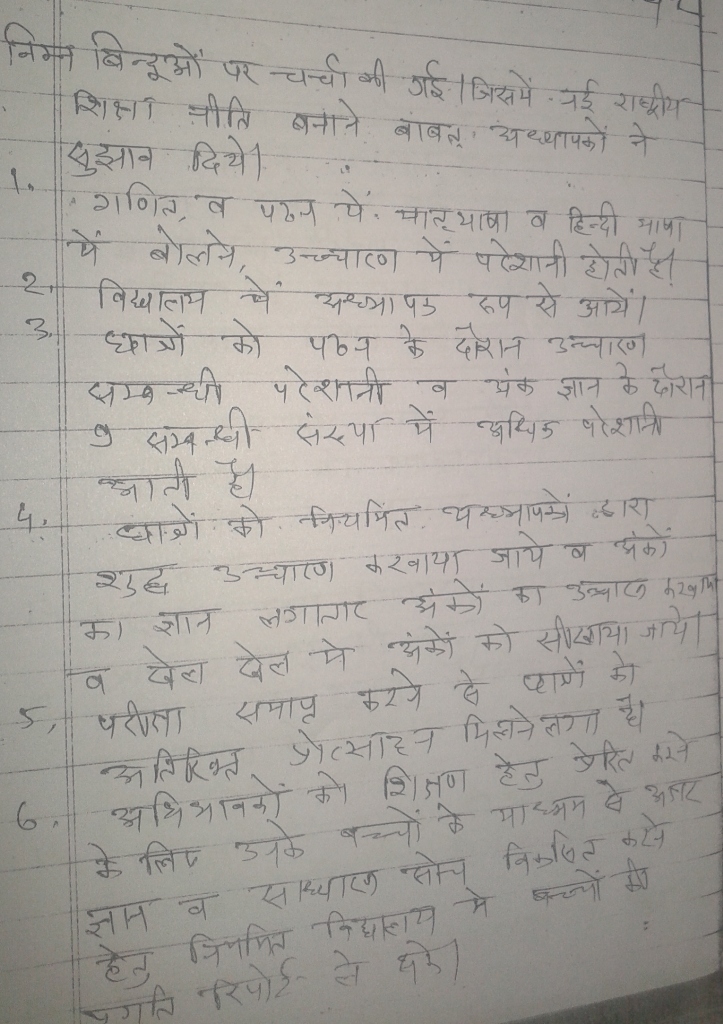 निम्न बिन्दूओं पर चर्चा की गई। जिसमें नई राष्ट्रीय
शिक्षा नीति बनाने बाबत् अध्यापकों ने
सुझाव दिये।
1. गणित, व पठन में मातृभाषा व हिन्दी भाषा
में बोलने, उच्चारण में परेशानी होती है।
2. विद्यालय में अध्यापक रूप से आयें।
3. छात्रों को पठन के दौरान उच्चारण
सम्बन्धी परेशानी व अंक ज्ञान के दौरान
9 सम्बन्धी संख्या में अधिक परेशानी
आती है।
4. छात्रों को नियमित अध्यापकों द्वारा
शुद्ध उच्चारण करवाया जाये व अंकों
का ज्ञान लगातार अंकों का उच्चारण करवाया
व खेल खेल में अंकों को सीखाया जाये।
5. परीक्षा समाप्त करने से छात्रों को
अतिरिक्त प्रोत्साहन मिलने लगा है।
6. अभिभावकों को शिक्षण हेतु प्रेरित करने
के लिए उनके बच्चों के माध्यम से अक्षर
ज्ञान व साधारण सोच विकसित करने
हेतु नियमित विद्यालय में बच्चों की
प्रगति रिपोर्ट ले